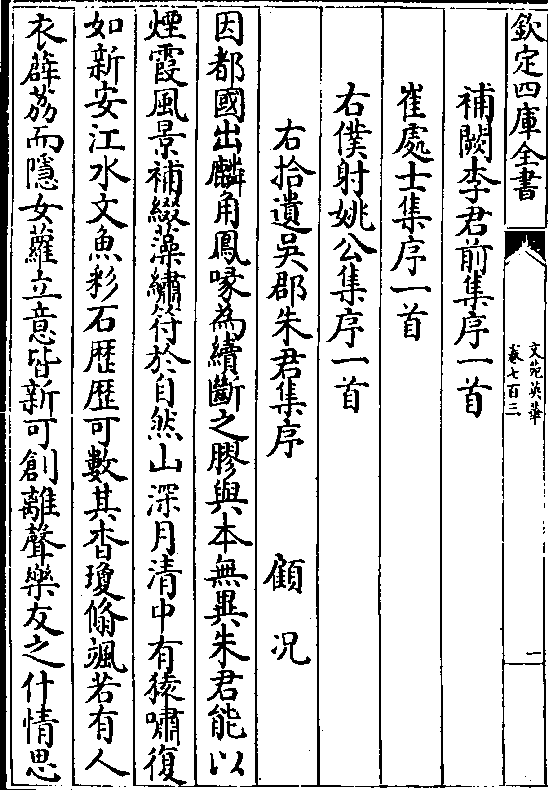 欽定四庫全書
文苑英華
卷七百三
一
補闕李君前集序一首
崔處士集序一首
右僕射姚公集序一首
右拾遺吳郡朱君集序 顧況
因都國出麟角鳳喙為續斷之膠與本無異朱君能以
煙霞風景補綴藻繡符於自然山深月清中有猿嘯復
如新安江水文魚彩石歴歴可數其杳瓊翛颯若有人
衣薜荔而隱女蘿立意皆新可創離聲樂友之什情思